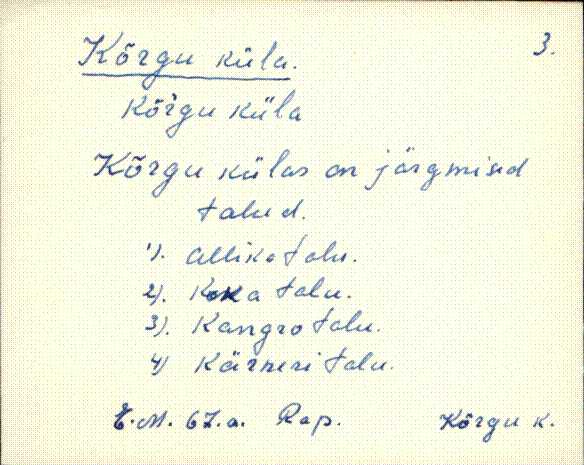 Kõrgu küla. 3.
Kõrgu küla
Kõrgu külas on järgmised
talud.
1). Allika talu.
2). Koka talu.
3). Kangro talu.
4) Kärneri talu.
E.M. 67.a. Rap. Kõrgu k.